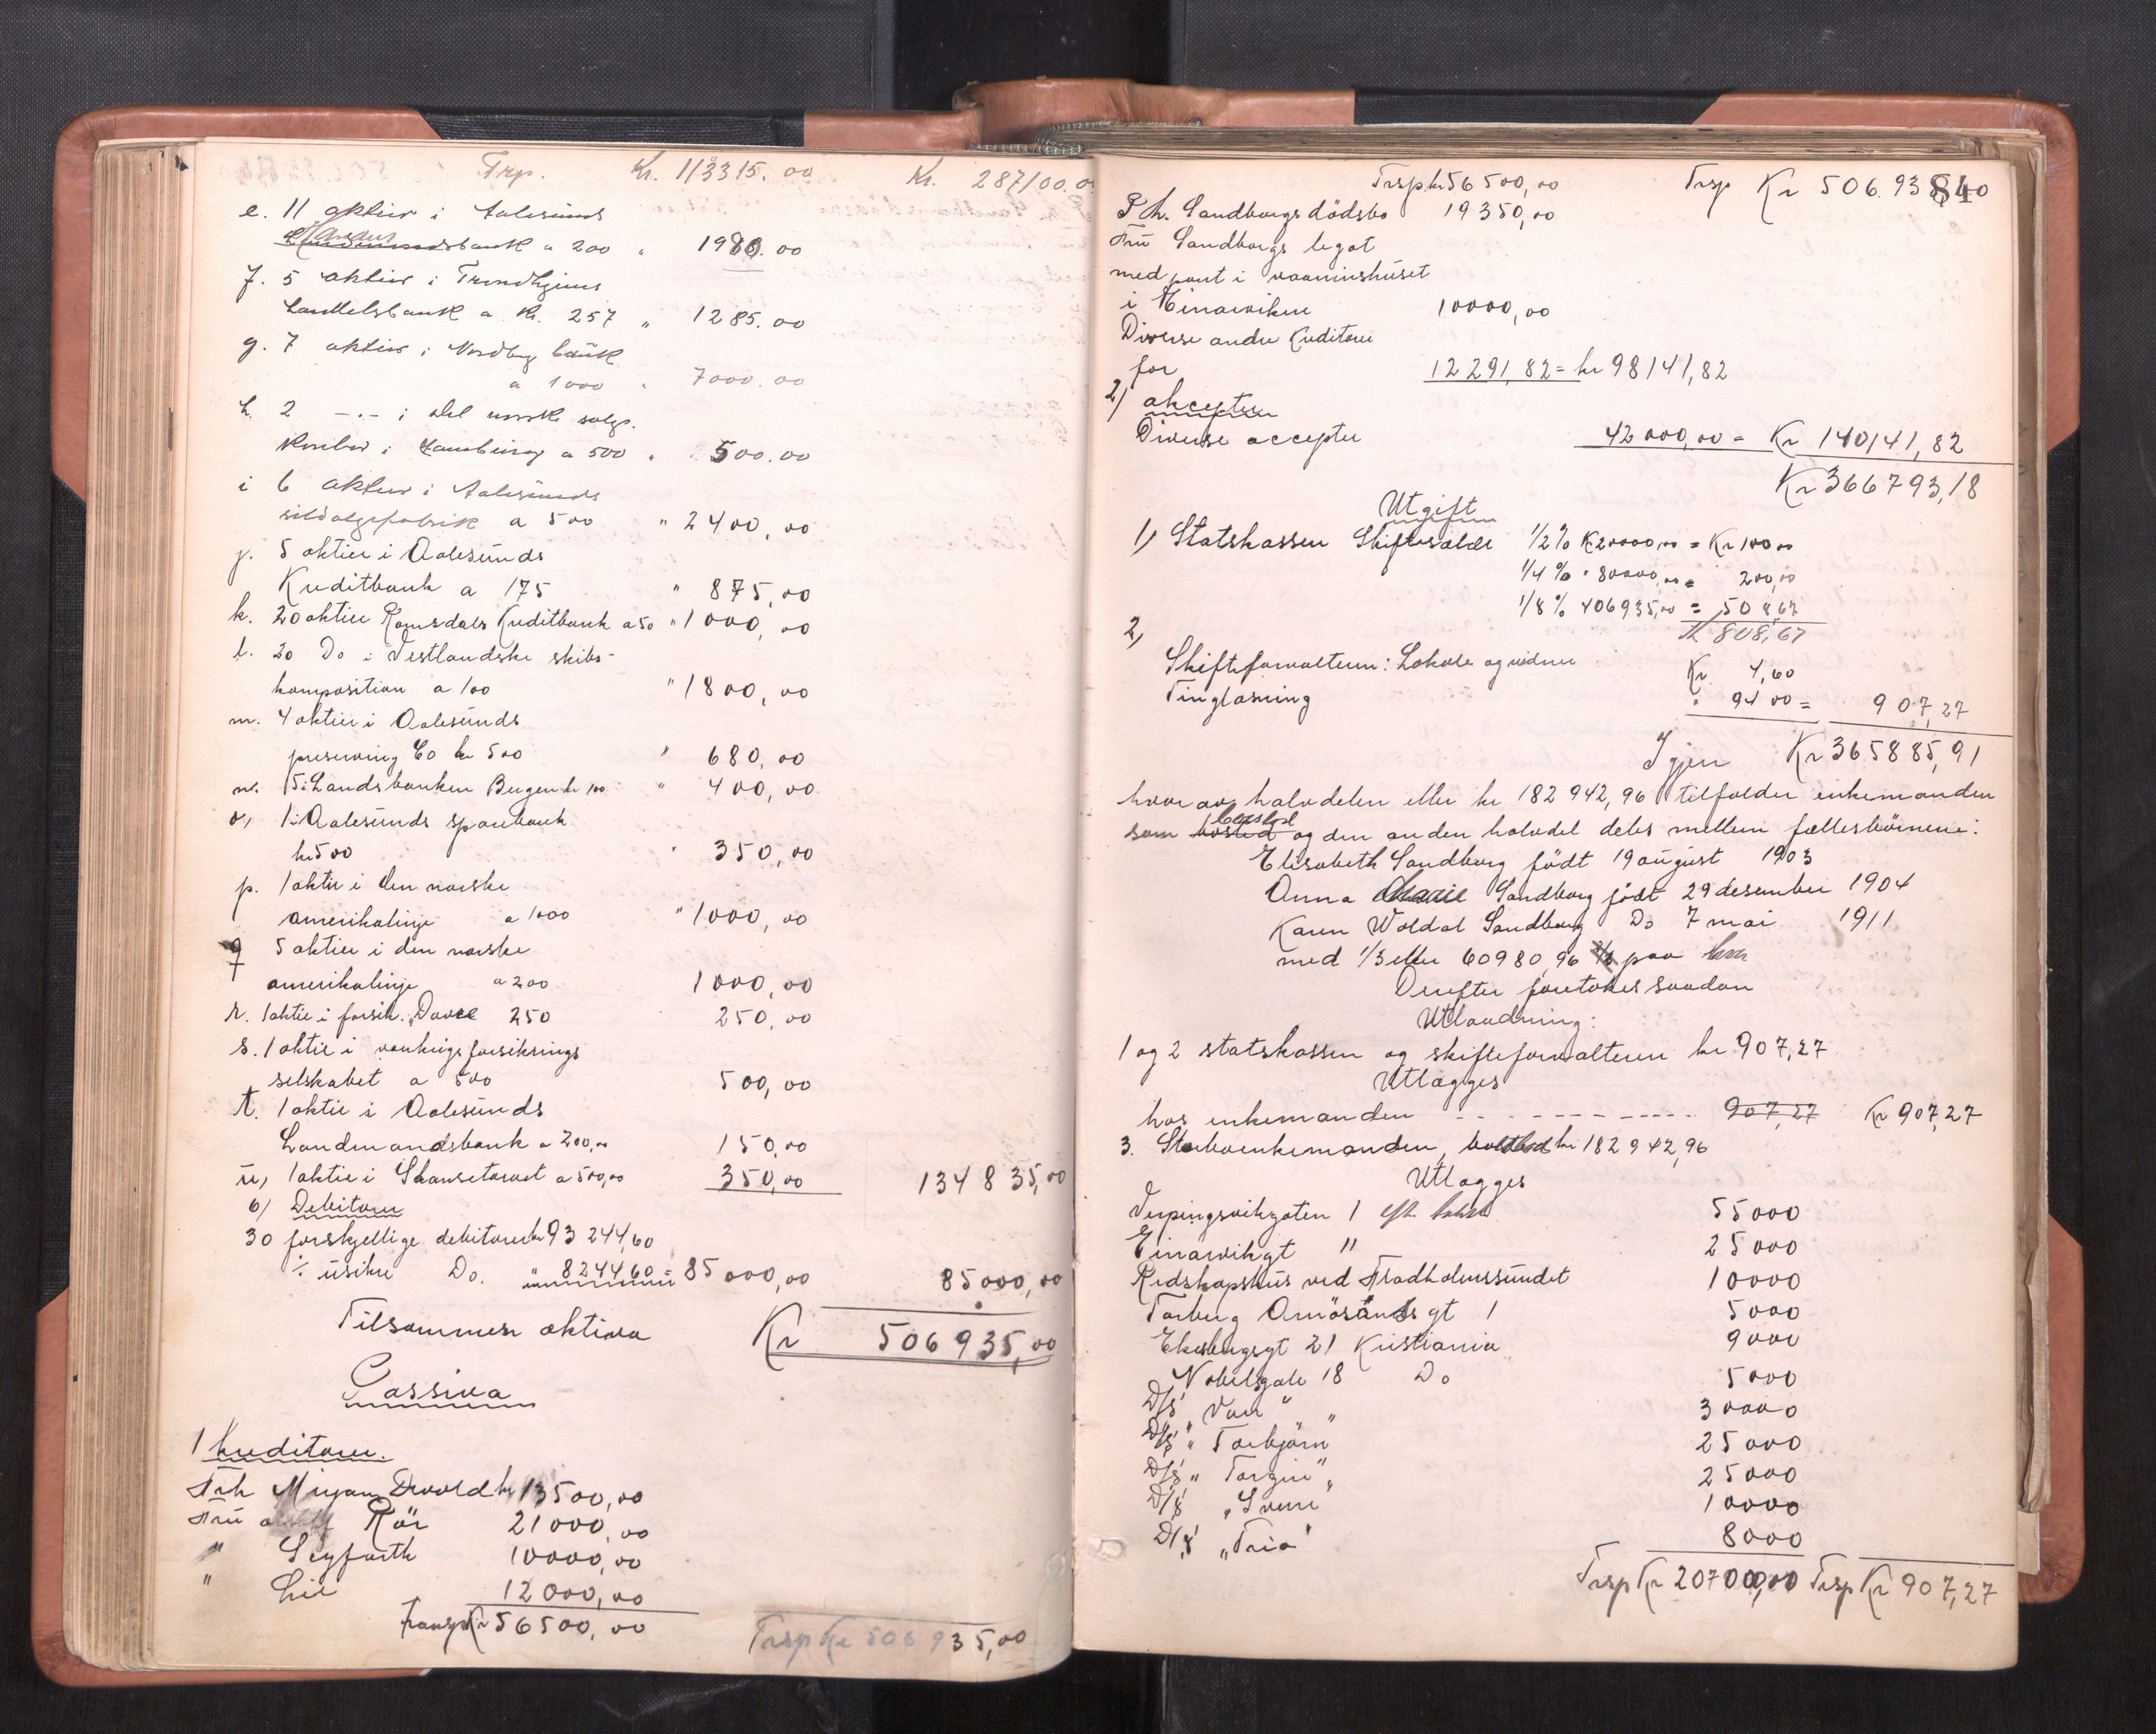 Trp. Kr. 113315.00 Kr. 287100.0
e. 11 aktier i Aalesunds
bank a 200 " 1980.00
f. 5 aktier i Trondhjems
Handelsbank a Kr. 257 " 1285.00
g. 7 aktier i Nordbyg bank
a 1000 " 7000.00
h. 2 -.- i Det norske salgs.
kontor i Hamburg a 500 " 500.00
i 6 aktier i Aalesunds
sildolgefabrik a 500 " 2400,00
j. 5 aktier i Aalesunds
Kreditbank a 175 " 875,00
k. 20 aktier Romsdals Kreditbank a 50 " 1000,00
l. 20 Do i Vestlandske skibs-
komposition a 100 " 1800,00
m. 4 aktier i Aalesunds
preserving Co kr 500 " 680,00
n. 5 i Landsbanken Bergen kr 100 " 400,00
o, 1 i Aalesunds sparebank
kr 500 " 350,00
p. 1 aktie i den norske
amerikalinje a 1000 " 1000,00
q 5 aktier i den norske
amerikalinje a 200 1000,00
r. 1 aktie i forsik. "Dovre 250 250,00
s. 1 aktie i forsikrings
selskabet a 500 500,00
t. 1 aktie i Aalesunds
Landmandsbank a 200,00 150,00
u, 1 aktie i Skansetorvet a 500,00 350,00 134835,00
6) Debitorer
30 forskjellige debitorer kr 93244,60
÷ usikre Do. " 8244,60 = 85000,00 85000,00
Tilsammen aktiva Kr 506935,00
Passiva
1 Kreditorer.
Frk Mirjam Devold kr 13500,00
Fru Rör 21000,00
" Seyfarth 10000,00
" Lie 12000,00
Transp Kr 56500,00 Trsp Kr 506935,00
Trsp. kr 56500,00 Trsp Kr 506.935,00
84
P. h. Sandborgs dödsbo 19350,00
Fru Sandborgs legat
med pant i vaaningshuset
i Einarviken 10000,00
Diverse andre Kreditorer
for 12291,82 = kr 98141,82
2) akcepter
Diverse accepter 42000,00 = Kr 140141,82
Kr 366793,18
Utgift
1, Statskassen Skifteafgift 1/2% K 20000,00 = Kr 100,00
1/4 % " 80000,00 = 200,00
1/8 % 406935,00 = 508,67
K 808,67
2,
Skifteforvalteren: Lokale og vidner Kr. 4,60
Tinglæsning " 94 00 = 907,27
Igjen Kr 365885,91
hvorav halvdelen eller kr 182942,96 tilfalder enkemanden
som boslod og den anden halvdel deles mellem fællesbörnene:
Elisabeth Sandborg födt 19 august 1903
Anna Marie Sandborg födt 29 desember 1904
Karen Woldat Sandborg Do 7 mai 1911
med 1/3 eller 60980,96 2/3 paa hver
Derefter foretokes saadan
Utlodning:
1 og 2 statskassen og skifteforvalteren kr 907,27
Utlægges
hos enkemanden - - - - - - - 907,27 Kr 907,27
3. Sterboenkemanden, boslod kr 182942,96
Utlægges
Verpingsvikgaten 1 55000
Einarvikgt " 25000
Redskapshus ved Fladholmssundet 10000
Torberg Arnösöns gt 1 5000
Ekebergsgt 21 Kristiania 9000
Nobelsgate 18 Do 5000
D/S "Varr" 30000
D/S "Torbjörn" 25000
D/S "Torgeir" 25000
D/S "Sverre" 10000
D/S "Trio" 8000
Trsp Kr 207000,00 Trsp Kr 907,27